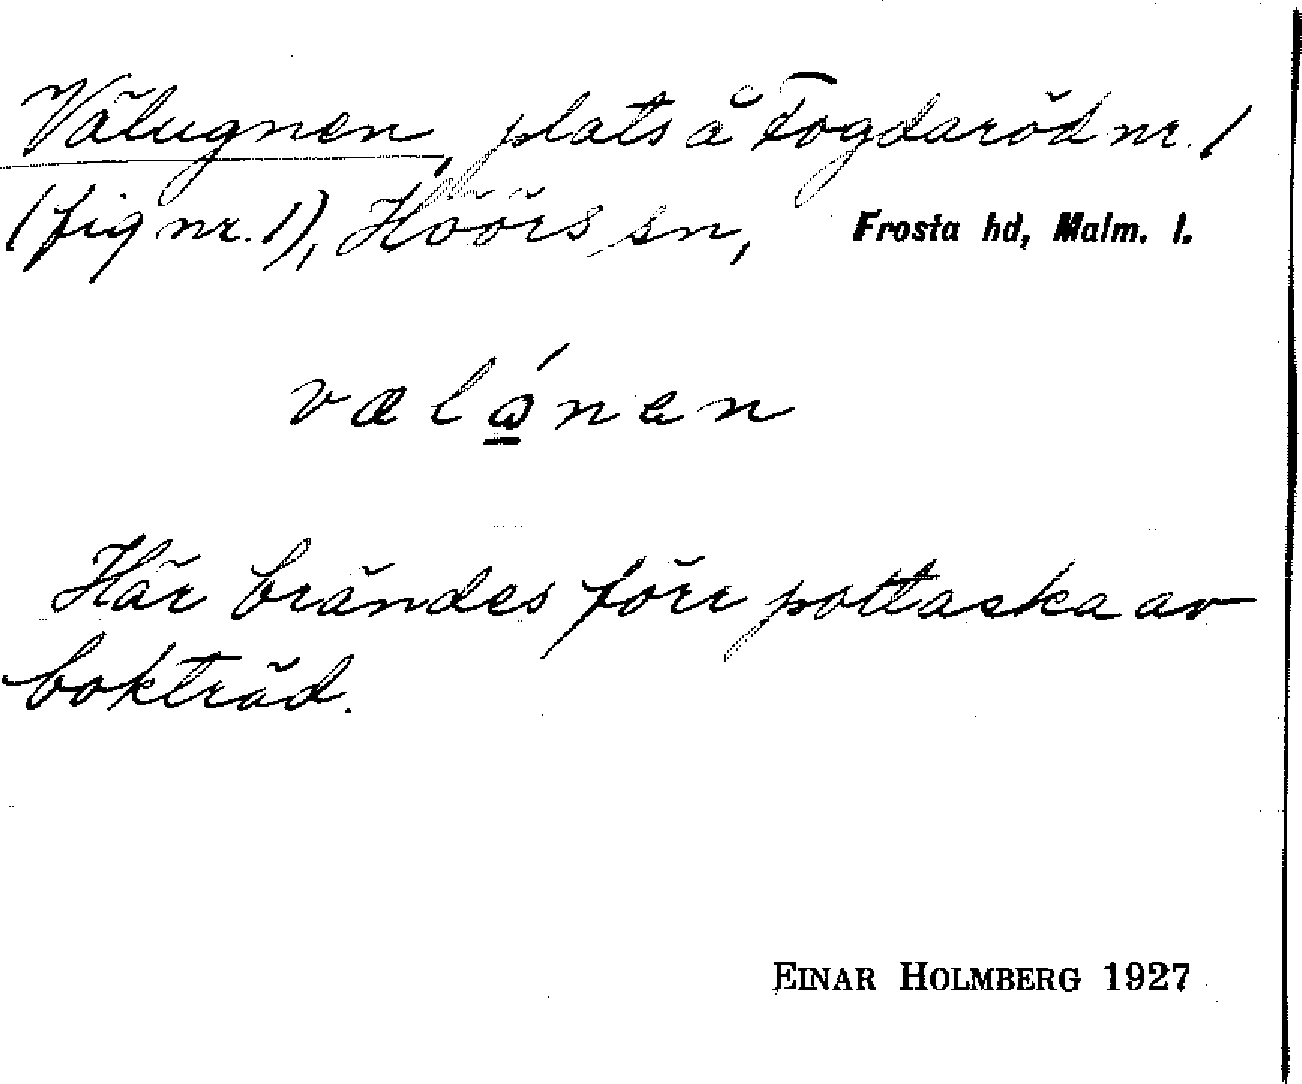 Välugnen, plats å Fogdaröd nr. 1
(fig nr. 1), Höörs sn, Frosta hd, Malm. l.
Här brändes förr pottaska av
bokträd.
EINAR HOLMBERG 1927